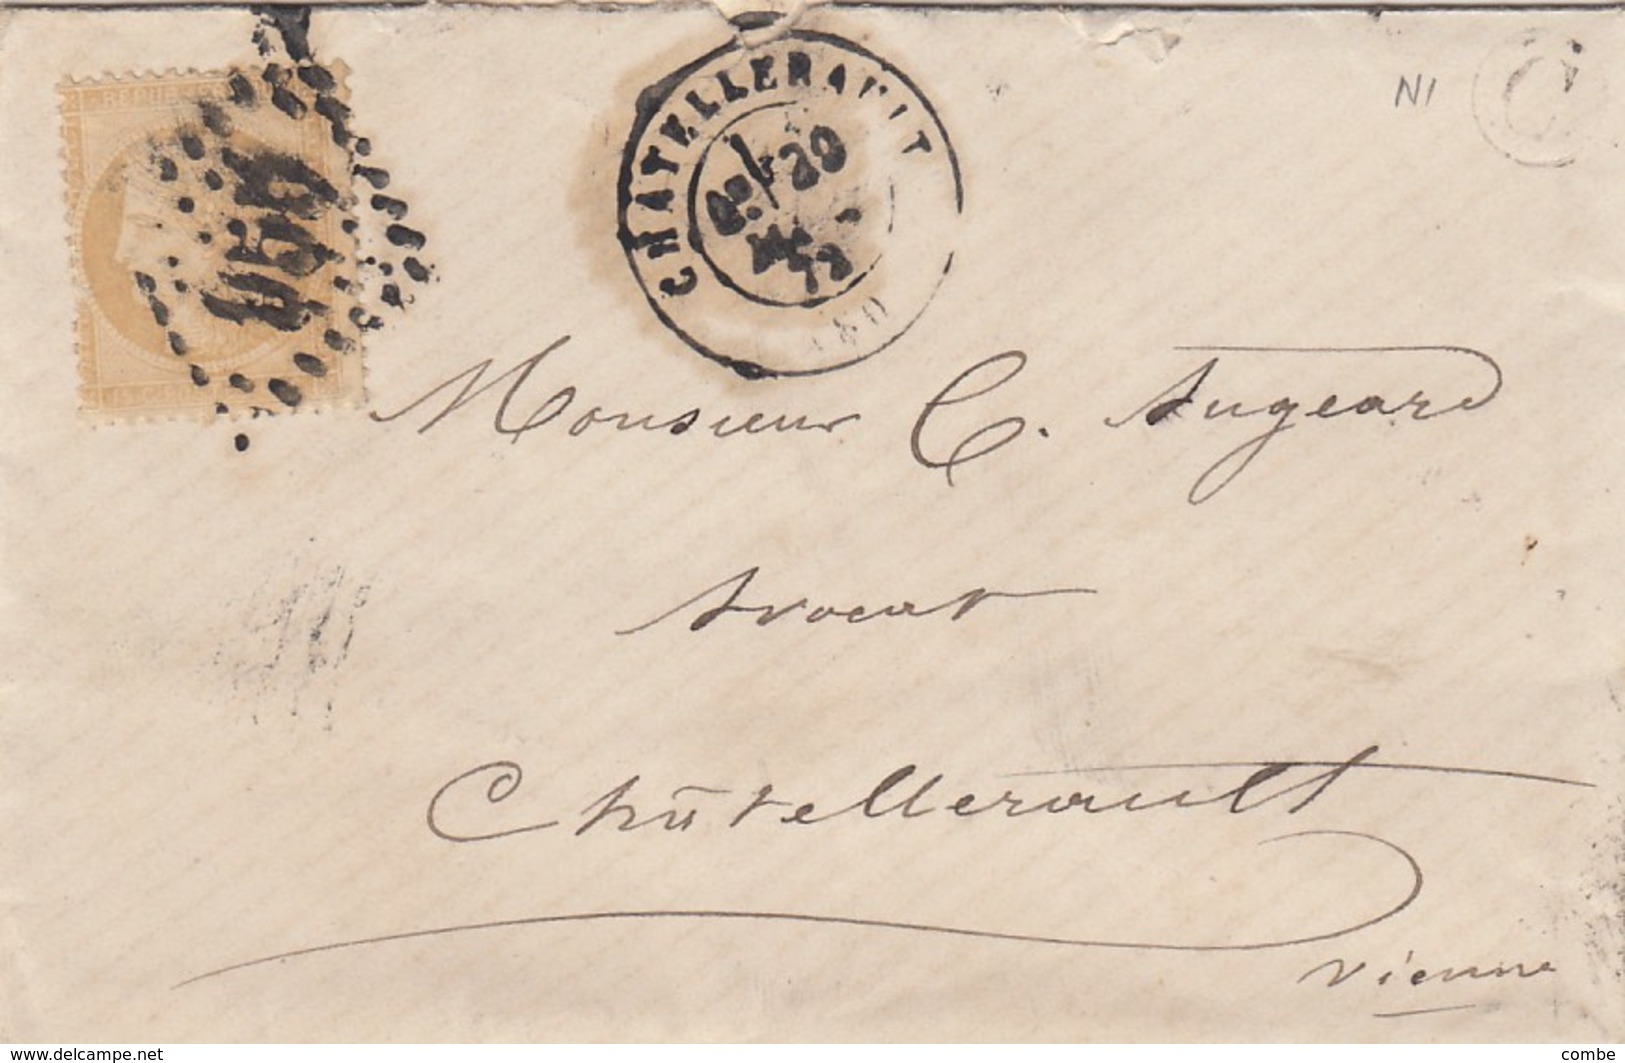 REPUB
956
15 C.
CHATELLERAULT
20
72
(80)
N1
Monsieur C. Augeard
Avocat
Châtellerault
Vienne
www.delcampe.net
combe